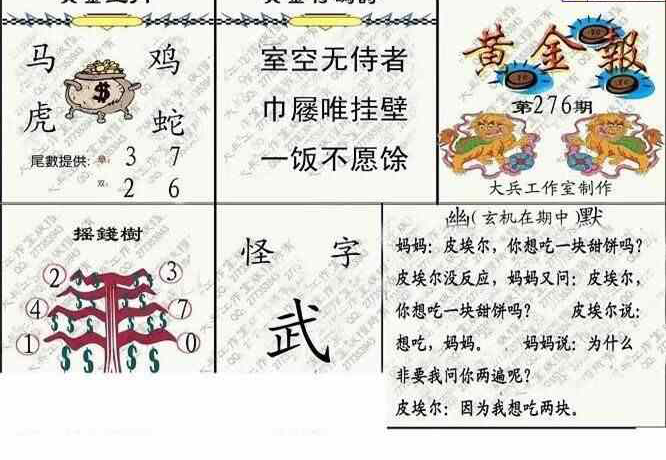 马 鸡
$
虎 蛇
尾數提供: 单: 3 7
双: 2 6
室空无侍者
巾屦唯挂壁
一饭不愿馀
黄金報
第276期
大兵工作室制作
摇錢樹
2 3
4 7
1 0
怪 字
武
幽(玄机在期中)默
妈妈：皮埃尔，你想吃一块甜饼吗？
皮埃尔没反应，妈妈又问：皮埃尔，
你想吃一块甜饼吗？ 皮埃尔说：
想吃，妈妈。 妈妈说：为什么
非要我问你两遍呢？
皮埃尔：因为我想吃两块。